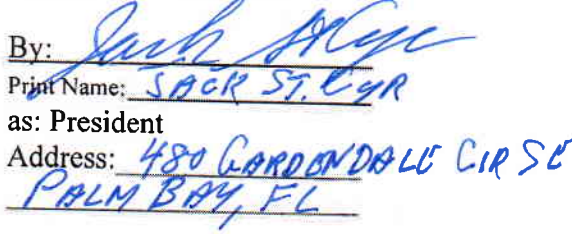 By: Jack St Cyr
Print Name: JACK ST. CYR
as: President
Address: 480 GARDENDALE CIR SE
PALM BAY, FL